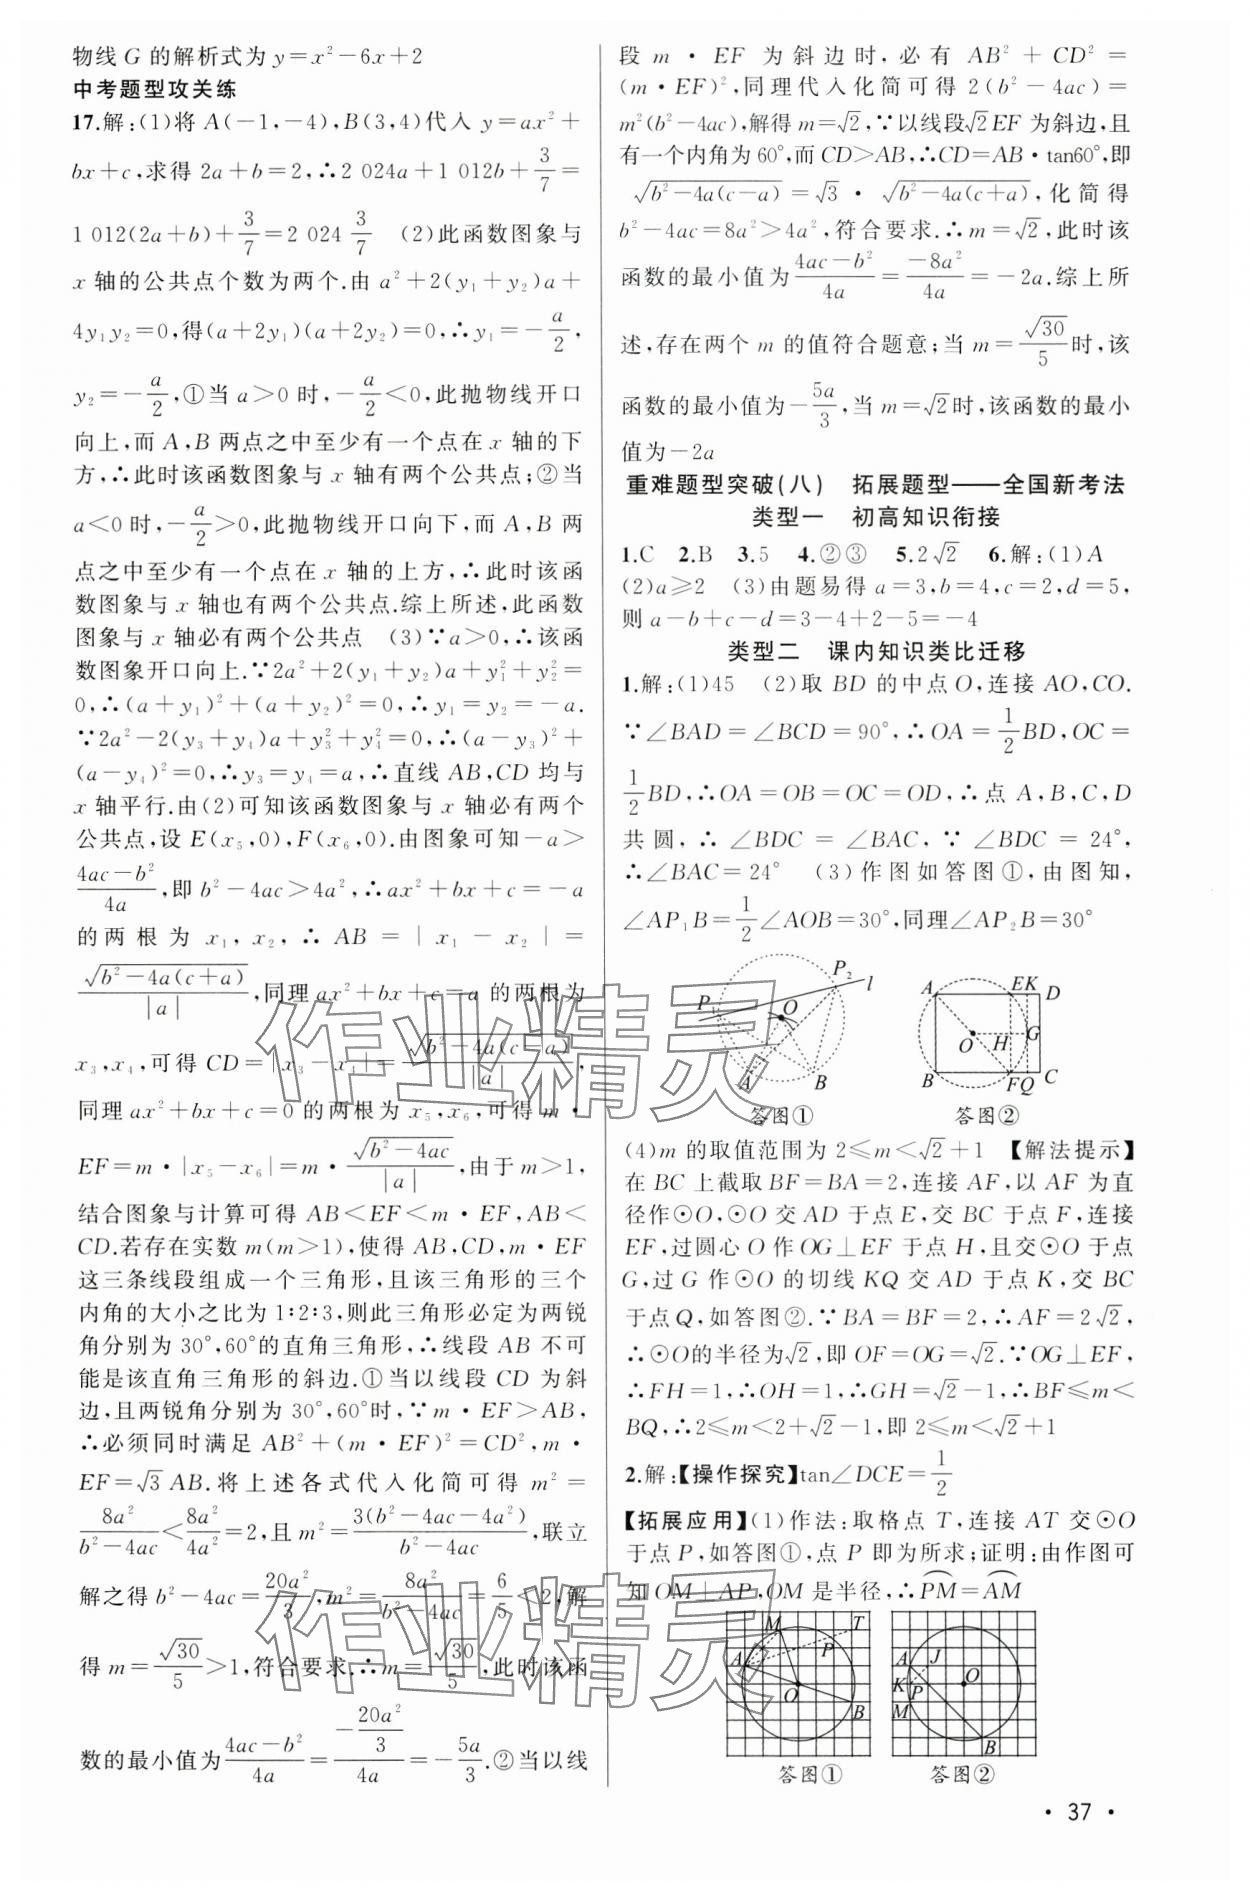 物线 G 的解析式为 y=x²-6x+2
中考题型攻关练
17.解:(1)将 A(-1,-4),B(3,4)代入 y=ax²+
bx+c,求得 2a+b=2,∴2 024a+1 012b+3/7=
1 012(2a+b)+3/7=2 024 3/7　(2)此函数图象与
x 轴的公共点个数为两个.由 a²+2(y₁+y₂)a+
4y₁y₂=0,得(a+2y₁)(a+2y₂)=0,∴y₁=-a/2,
y₂=-a/2,①当 a>0 时,-a/2<0,此抛物线开口
向上,而 A,B 两点之中至少有一个点在 x 轴的下
方,∴此时该函数图象与 x 轴有两个公共点;②当
a<0 时,-a/2>0,此抛物线开口向下,而 A,B 两
点之中至少有一个点在 x 轴的上方,∴此时该函
数图象与 x 轴也有两个公共点.综上所述,此函数
图象与 x 轴必有两个公共点　(3)∵a>0,∴该函
数图象开口向上.∵2a²+2(y₁+y₂)a+y₁²+y₂²=
0,∴(a+y₁)²+(a+y₂)²=0,∴y₁=y₂=-a.
∵2a²-2(y₃+y₄)a+y₃²+y₄²=0,∴(a-y₃)²+
(a-y₄)²=0,∴y₃=y₄=a,∴直线 AB,CD 均与
x 轴平行.由(2)可知该函数图象与 x 轴必有两个
公共点,设 E(x₅,0),F(x₆,0).由图象可知-a>
(4ac-b²)/4a,即 b²-4ac>4a²,∴ax²+bx+c=-a
的两根为 x₁,x₂,∴AB=|x₁-x₂|=
√(b²-4a(c+a))/|a|,同理 ax²+bx+c=a 的两根为
x₃,x₄,可得 CD=|x₃-x₄|=√(b²-4a(c-a))/|a|,
同理 ax²+bx+c=0 的两根为 x₅,x₆,可得 m·
EF=m·|x₅-x₆|=m·√(b²-4ac)/|a|,由于 m>1,
结合图象与计算可得 AB<EF<m·EF,AB<
CD.若存在实数 m(m>1),使得 AB,CD,m·EF
这三条线段组成一个三角形,且该三角形的三个
内角的大小之比为 1:2:3,则此三角形必定为两锐
角分别为 30°,60°的直角三角形,∴线段 AB 不可
能是该直角三角形的斜边.①当以线段 CD 为斜
边,且两锐角分别为 30°,60°时,∵m·EF>AB,
∴必须同时满足 AB²+(m·EF)²=CD²,m·
EF=√3 AB.将上述各式代入化简可得 m²=
8a²/(b²-4ac)<8a²/4a²=2,且 m²=3(b²-4ac-4a²)/(b²-4ac),联立
解之得 b²-4ac=20a²/3,m²=8a²/(b²-4ac)=6/5<2,解
得 m=√30/5>1,符合要求.∴m=√30/5,此时该函
数的最小值为(4ac-b²)/4a=(-20a²/3)/4a=-5a/3.②当以线
段 m·EF 为斜边时,必有 AB²+CD²=
(m·EF)²,同理代入化简可得 2(b²-4ac)=
m²(b²-4ac),解得 m=√2,∵以线段√2EF 为斜边,且
有一个内角为 60°,而 CD>AB,∴CD=AB·tan60°,即
√(b²-4a(c-a))=√3·√(b²-4a(c+a)),化简得
b²-4ac=8a²>4a²,符合要求.∴m=√2,此时该
函数的最小值为(4ac-b²)/4a=-8a²/4a=-2a.综上所
述,存在两个 m 的值符合题意;当 m=√30/5时,该
函数的最小值为-5a/3,当 m=√2时,该函数的最小
值为-2a
重难题型突破(八)　拓展题型——全国新考法
类型一　初高知识衔接
1.C　2.B　3.5　4.②③　5.2√2　6.解:(1)A
(2)a≥2　(3)由题易得 a=3,b=4,c=2,d=5,
则 a-b+c-d=3-4+2-5=-4
类型二　课内知识类比迁移
1.解:(1)45　(2)取 BD 的中点 O,连接 AO,CO.
∵∠BAD=∠BCD=90°,∴OA=1/2BD,OC=
1/2BD,∴OA=OB=OC=OD,∴点 A,B,C,D
共圆,∴∠BDC=∠BAC,∵∠BDC=24°,
∴∠BAC=24°　(3)作图如答图①,由图知,
∠AP₁B=1/2∠AOB=30°,同理∠AP₂B=30°
P₂
l
P₁
O
A
B
答图①
A
E
K
D
O
H
G
B
F
Q
C
答图②
(4)m 的取值范围为 2≤m<√2+1　【解法提示】
在 BC 上截取 BF=BA=2,连接 AF,以 AF 为直
径作⊙O,⊙O 交 AD 于点 E,交 BC 于点 F,连接
EF,过圆心 O 作 OG⊥EF 于点 H,且交⊙O 于点
G,过 G 作⊙O 的切线 KQ 交 AD 于点 K,交 BC
于点Q,如答图②.∵BA=BF=2,∴AF=2√2,
∴⊙O的半径为√2,即 OF=OG=√2.∵OG⊥EF,
∴FH=1,∴OH=1,∴GH=√2-1,∴BF≤m<
BQ,∴2≤m<2+√2-1,即 2≤m<√2+1
2.解:【操作探究】tan∠DCE=1/2
【拓展应用】(1)作法:取格点 T,连接 AT 交⊙O
于点 P,如答图①,点 P 即为所求;证明:由作图可
知 OM⊥AP,OM 是半径,∴P͡M=A͡M
M
T
A
P
O
B
答图①
A
J
K
P
O
M
B
答图②
作业精灵
作业精灵
· 37 ·